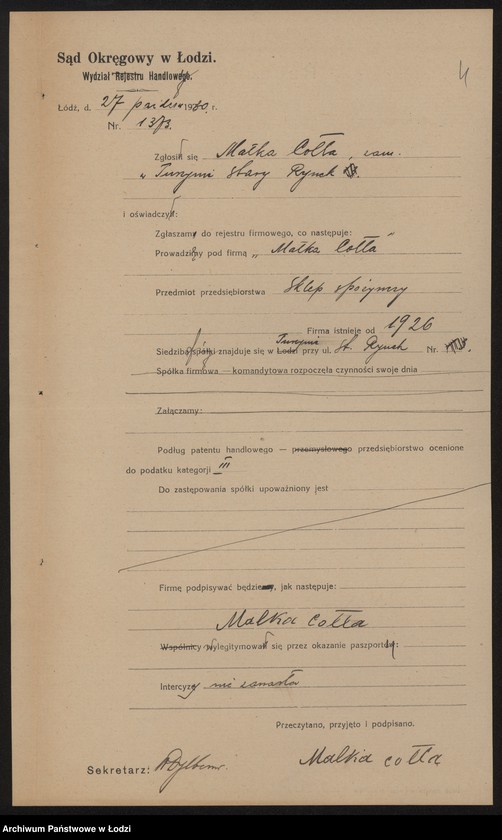 4
Sąd Okręgowy w Łodzi.
Wydział Rejestru Handlowego.
Łódź, d. 27 paźdz 1930. r.
Nr. 1373.
Zgłosił się Małka Cołta, zam.
w Tuszynie Stary Rynek
i oświadczył:
Zgłaszam do rejestru firmowego, co następuje:
Prowadzimy pod firmą „Małka Cołta"
Przedmiot przedsiębiorstwa Sklep spożywczy
Firma istnieje od 1926
Siedziba spółki znajduje się w Łodzi Tuszynie przy ul. St. Rynek Nr.
Spółka firmowa — komandytowa rozpoczęła czynności swoje dnia
Załączamy:
Podług patentu handlowego — przemysłowego przedsiębiorstwo ocenione
do podatku kategorji III
Do zastępowania spółki upoważniony jest
Firmę podpisywać będziemy, jak następuje:
Malka cołta
Wspólnicy wylegitymowali się przez okazanie paszportów:
Intercyzy nie zawarła
Przeczytano, przyjęto i podpisano.
Sekretarz:
Malkia cołta
Archiwum Państwowe w Łodzi